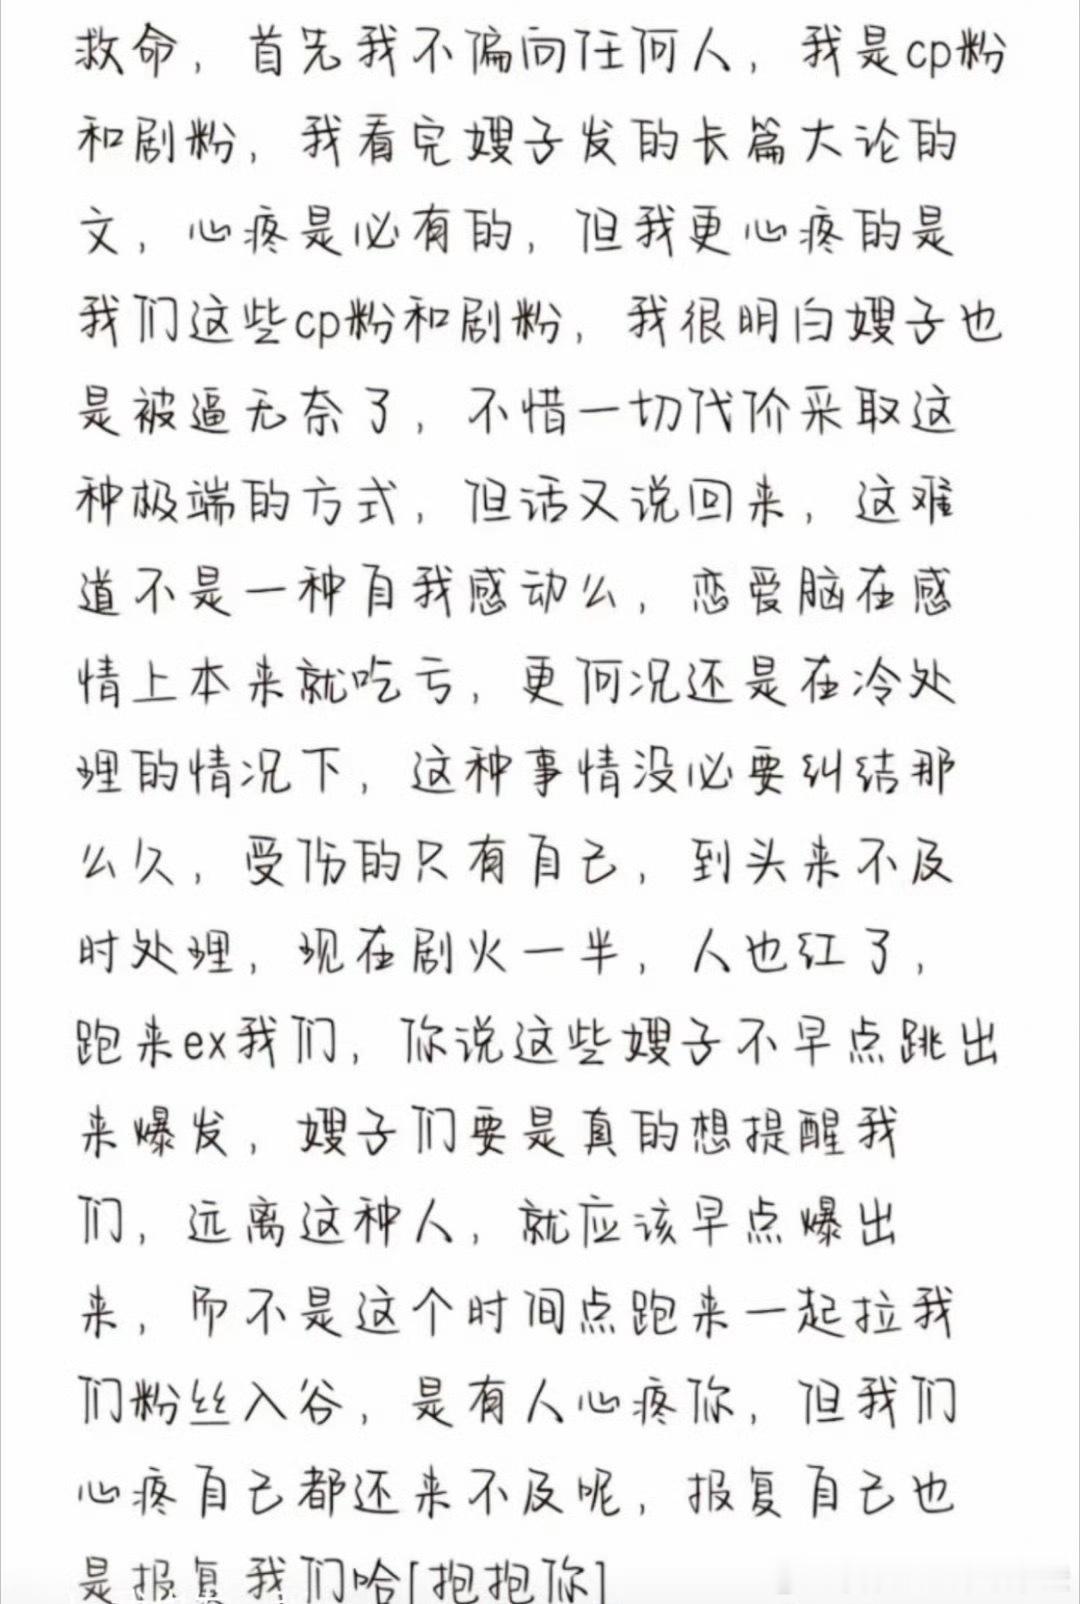 救命，首先我不偏向任何人，我是cp粉
和剧粉，我看完嫂子发的长篇大论的
文，心疼是必有的，但我更心疼的是
我们这些cp粉和剧粉，我很明白嫂子也
是被逼无奈了，不惜一切代价采取这
种极端的方式，但话又说回来，这难
道不是一种自我感动么，恋爱脑在感
情上本来就吃亏，更何况还是在冷处
理的情况下，这种事情没必要纠结那
么久，受伤的只有自己，到头来不及
时处理，现在剧火一半，人也红了，
跑来ex我们，你说这些嫂子不早点跳出
来爆发，嫂子们要是真的想提醒我
们，远离这种人，就应该早点爆出
来，而不是这个时间点跑来一起拉我
们粉丝入谷，是有人心疼你，但我们
心疼自己都还来不及呢，报复自己也
是报复我们哈[抱抱你]